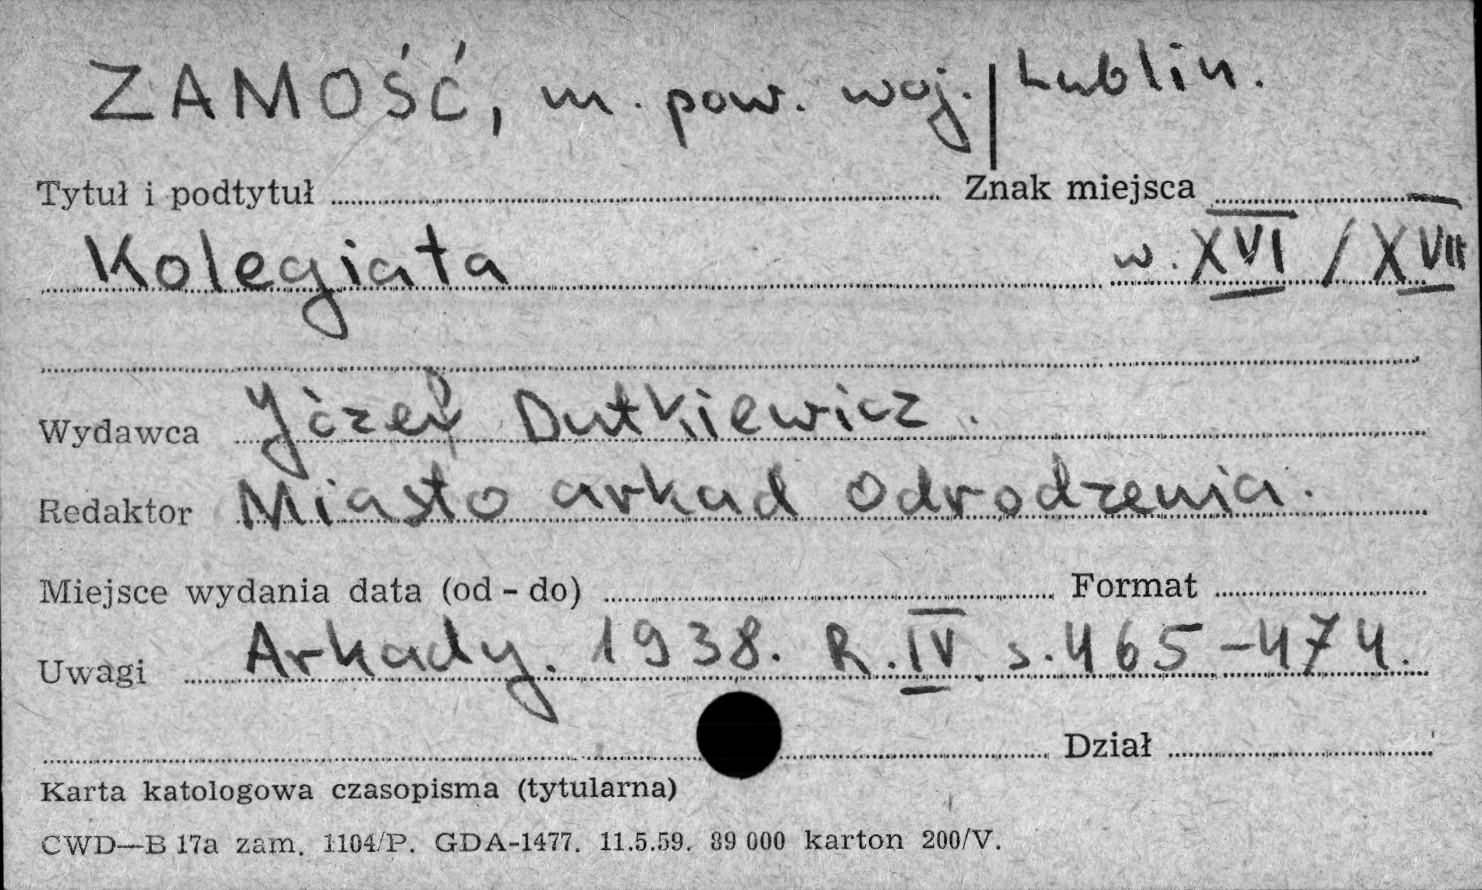 ZAMOŚĆ, m. pow. woj. / Lublin.
Tytuł i podtytuł Znak miejsca
Kolegiata w. XVI / XVII
Wydawca Józef Dutkiewicz.
Redaktor Miasto arkad odrodzenia.
Miejsce wydania data (od - do) Format
Uwagi Arkady. 1938. R. IV s. 465-474.
Dział
Karta katologowa czasopisma (tytularna)
CWD—B 17a zam. 1104/P. GDA-1477. 11.5.59. 89 000 karton 200/V.